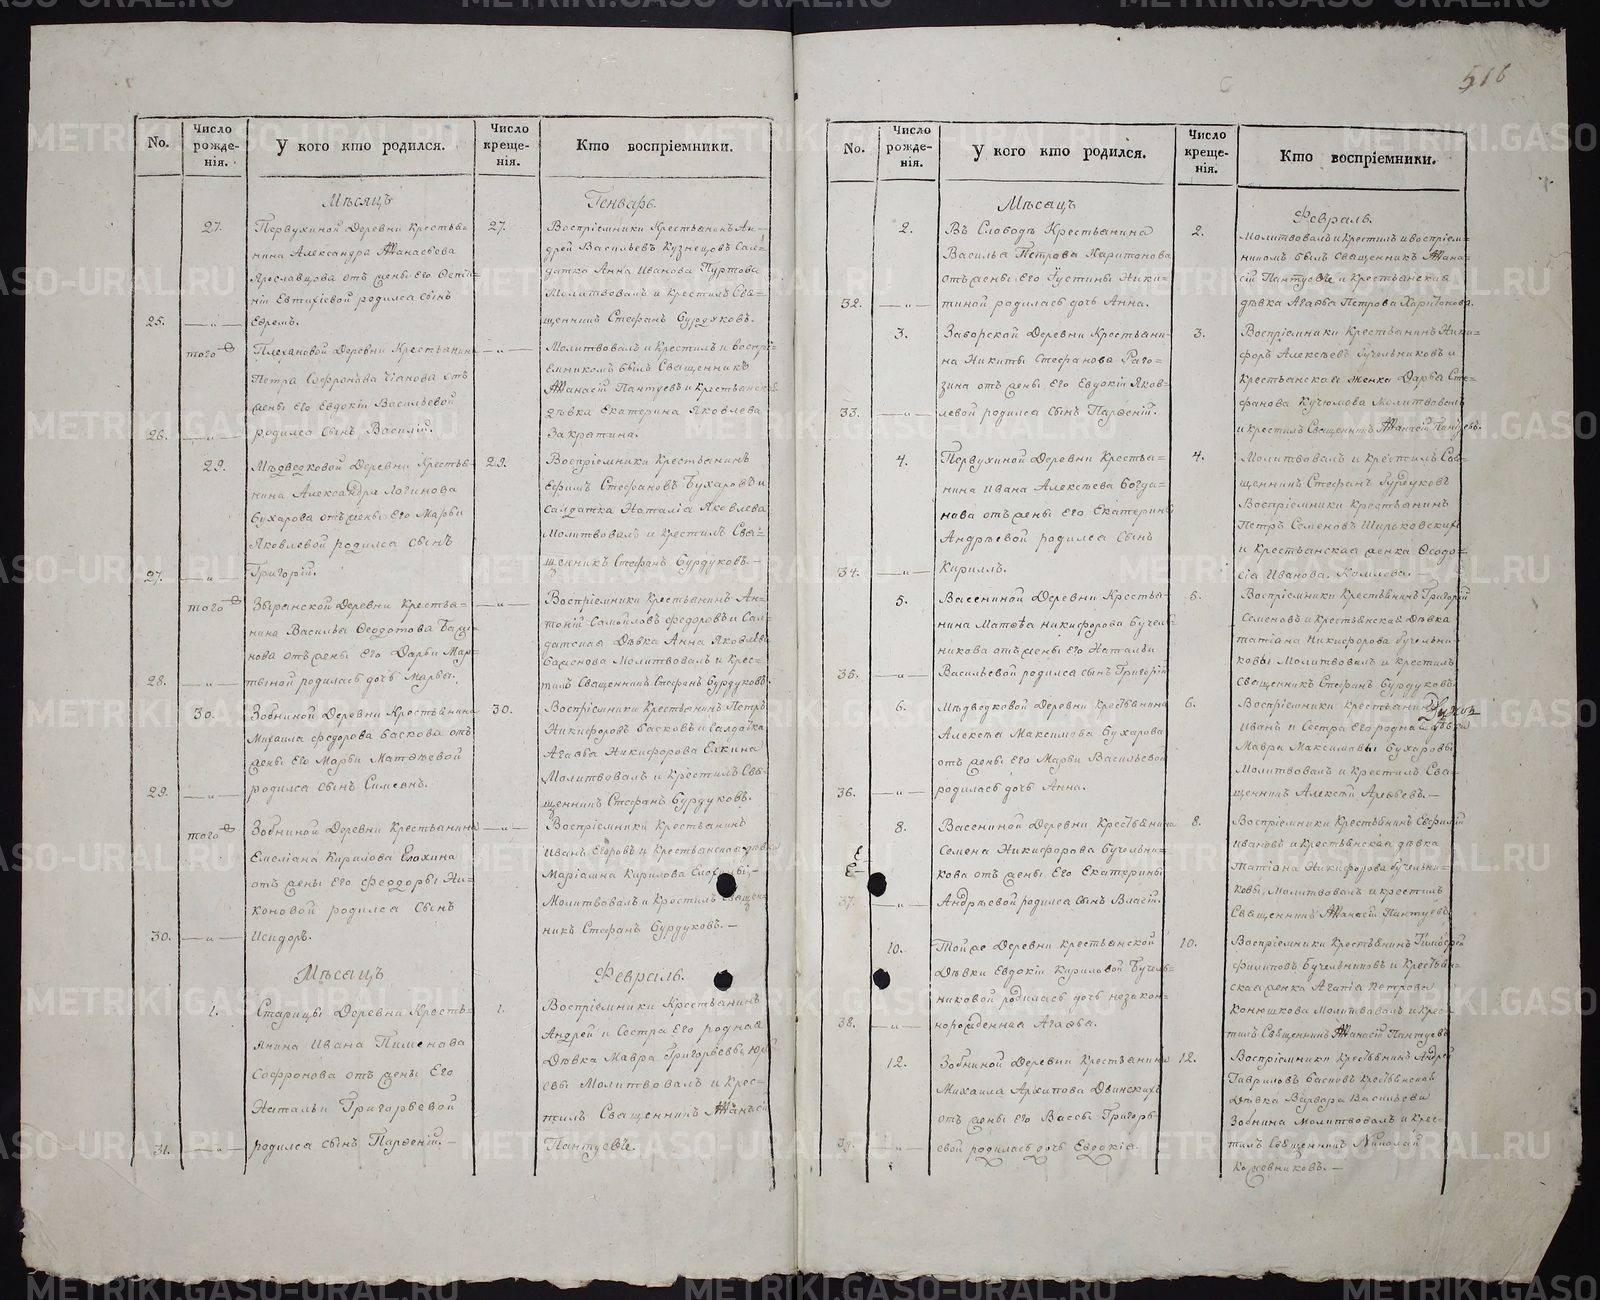 516
No.
Число рожде-нія.
У кого кто родился.
Число креще-нія.
Кто воспріемники.
Мѣсяцъ
Генварь.
27.
Первухиной Деревни Крестья=
нина Александра Афанасьева
Ярославцова отъ жены Его
Евтихіевой родился сынъ
25.
Ефремъ.
27.
Воспріемники Крестьянинъ Ан=
дрей Васильевъ Кузнецовъ Сал=
датка Анна Иванова Пуртова
Молитвовалъ и Крестилъ Свя=
щенникъ Стефанъ Бурдуковъ.
того
Плехановой Деревни Крестьянина
Петра Софронова отъ
жены Его Евдокіи Васильевой
26.
родился сынъ Василій.
Молитвовалъ и Крестилъ и воспрі=
емникомъ былъ Священникъ
Афанасій Пантуевъ и Крестьянская
дѣвка Екатерина Яковлева
Закратина.
29.
Мѣдведковой Деревни Крестья=
нина Александра Логинова
Бухарова отъ жены Его Марьи
Яковлевой родился сынъ
27.
Григорій.
29.
Воспріемники Крестьянинъ
Ефимъ Стефановъ Бухаровъ и
Салдатка Наталія Яковлева
Молитвовалъ и Крестилъ Свя=
щенникъ Стефанъ Бурдуковъ.
того
Деревни Крестья=
нина Василья Федотова
отъ жены Его Дарьи Мар=
28.
тыной родилась дочь Марья.
Воспріемники Крестьянинъ Ан=
тоній Самойловъ Федоровъ и Сал=
датская Дѣвка Анна Яковлева
Молитвовалъ и Крес=
тилъ Священникъ Стефанъ Бурдуковъ.
30.
Зобниной Деревни Крестьянина
Михаила Федорова Баскова отъ
жены Его Марьи Матвѣевой
29.
родился сынъ Симеонъ.
30.
Воспріемники Крестьянинъ Петръ
Никифоровъ Басковъ и Салдатка
Агафья Никифорова Елкина
Молитвовалъ и Крестилъ Свя=
щенникъ Стефанъ Бурдуковъ.
того
Зобниной Деревни Крестьянина
Емеліана Кирилова Елохина
отъ жены Его Феодоры Ни=
коновой родился Сынъ
30.
Исидоръ.
Воспріемники Крестьянинъ
Иванъ Егоровъ и Крестьянская дѣвка
Маріанна Кирилова
Молитвовалъ и Крестилъ Священ
никъ Стефанъ Бурдуковъ.
Мѣсяцъ
Февраль.
1.
Старицы Деревни Кресть=
янина Ивана Пименова
Софронова отъ жены Его
Натальи Григорьевой
31.
родился сынъ Парфеній.
1.
Воспріемники Крестьянинъ
Андрей и Сестра Его родная
Дѣвка Мавра Григорьевы
Молитвовалъ и Крес=
тилъ Священникъ Афанасій
Пантуевъ.
No.
Число рожде-нія.
У кого кто родился.
Число креще-нія.
Кто воспріемники.
Мѣсяцъ
Февраль.
2.
Въ Слободѣ Крестьянина
Василья Петрова Харитонова
отъ жены Его Іустины Ники=
32.
тиной родилась дочь Анна.
2.
Молитвовалъ и Крестилъ и воспріем=
никомъ былъ Священникъ Афана=
сій Пантуевъ и Крестьянская
дѣвка Агафья Петрова Харитонова.
3.
Заборской Деревни Крестьяни=
на Никиты Стефанова Раго=
зина отъ жены Его Евдокіи Яков=
33.
левой родился сынъ Парфеній.
3.
Воспріемники Крестьянинъ Ники=
форъ Алексѣевъ Бучельниковъ и
Крестьянская женка Дарья Сте=
фанова Кучюмова Молитвовалъ
и крестилъ Священникъ Афанасій Пантуевъ.
4.
Первухиной Деревни Крестья=
нина Ивана Алексѣева Богда=
нова отъ жены Его Екатерины
Андрѣевой родился Сынъ
34.
Кириллъ.
4.
Молитвовалъ и Крестилъ Свя=
щенникъ Стефанъ Бурдуковъ
Воспріемники Крестьянинъ
Петръ Семеновъ Широковскихъ
и Крестьянская женка Феодо=
сія Иванова
5.
Васениной Деревни Крестья=
нина Матвѣя Никифорова Бучель=
никова отъ жены Его Натальи
35.
Васильевой родился сынъ Григорій
5.
Воспріемники Крестьянинъ Григорій
Семеновъ и Крестьянская Дѣвка
Татіана Никифорова Бучельни=
ковы Молитвовалъ и крестилъ
Священникъ Стефанъ Бурдуковъ.
6.
Мѣдведковой Деревни Крестьянина
Алексѣя Максимова Бухарова
отъ жены Его Марьи Васильевой
36.
родилась дочь Анна.
6.
Воспріемники Крестьянинъ
Иванъ и Сестра Его родная Дѣвка
Мавра Максимовы Бухаровы
Молитвовалъ и Крестилъ Свя=
щенникъ Алексѣй Арефьевъ.
8.
Васениной Деревни Крестьянина
Семена Никифорова Бучельни=
кова отъ жены Его Екатерины
37.
Андрѣевой родился сынъ Власій.
8.
Воспріемники Крестьянинъ
Ивановъ и Крестьянская дѣвка
Татіана Никифорова Бучельни=
ковы, Молитвовалъ и крестилъ
Священникъ Афанасій Пантуевъ
10.
Той же Деревни Крестьянской
Дѣвки Евдокіи Кириловой Бучель=
никовой родилась дочь незакон=
38.
норожденная Агафья.
10.
Воспріемники Крестьянинъ Тимофей
Филиповъ Бучельниковъ и Крестьян=
ская женка Агапія Петрова
Конюшкова Молитвовалъ и Крес=
тилъ Священникъ Афанасій Пантуевъ
12.
Зобниной Деревни Крестьянина
Михаила Архипова Двинскихъ
отъ жены Его Вассы Григорь=
39.
евой родилась дочь Евдокія.
12.
Воспріемники Крестьянинъ Андрей
Гавриловъ Басковъ Крестьянская
Дѣвка Варвара Васильева
Зобнина Молитвовалъ и Крес=
тилъ Священникъ Николай
Кожевниковъ.
METRIKI.GASO-URAL.RU